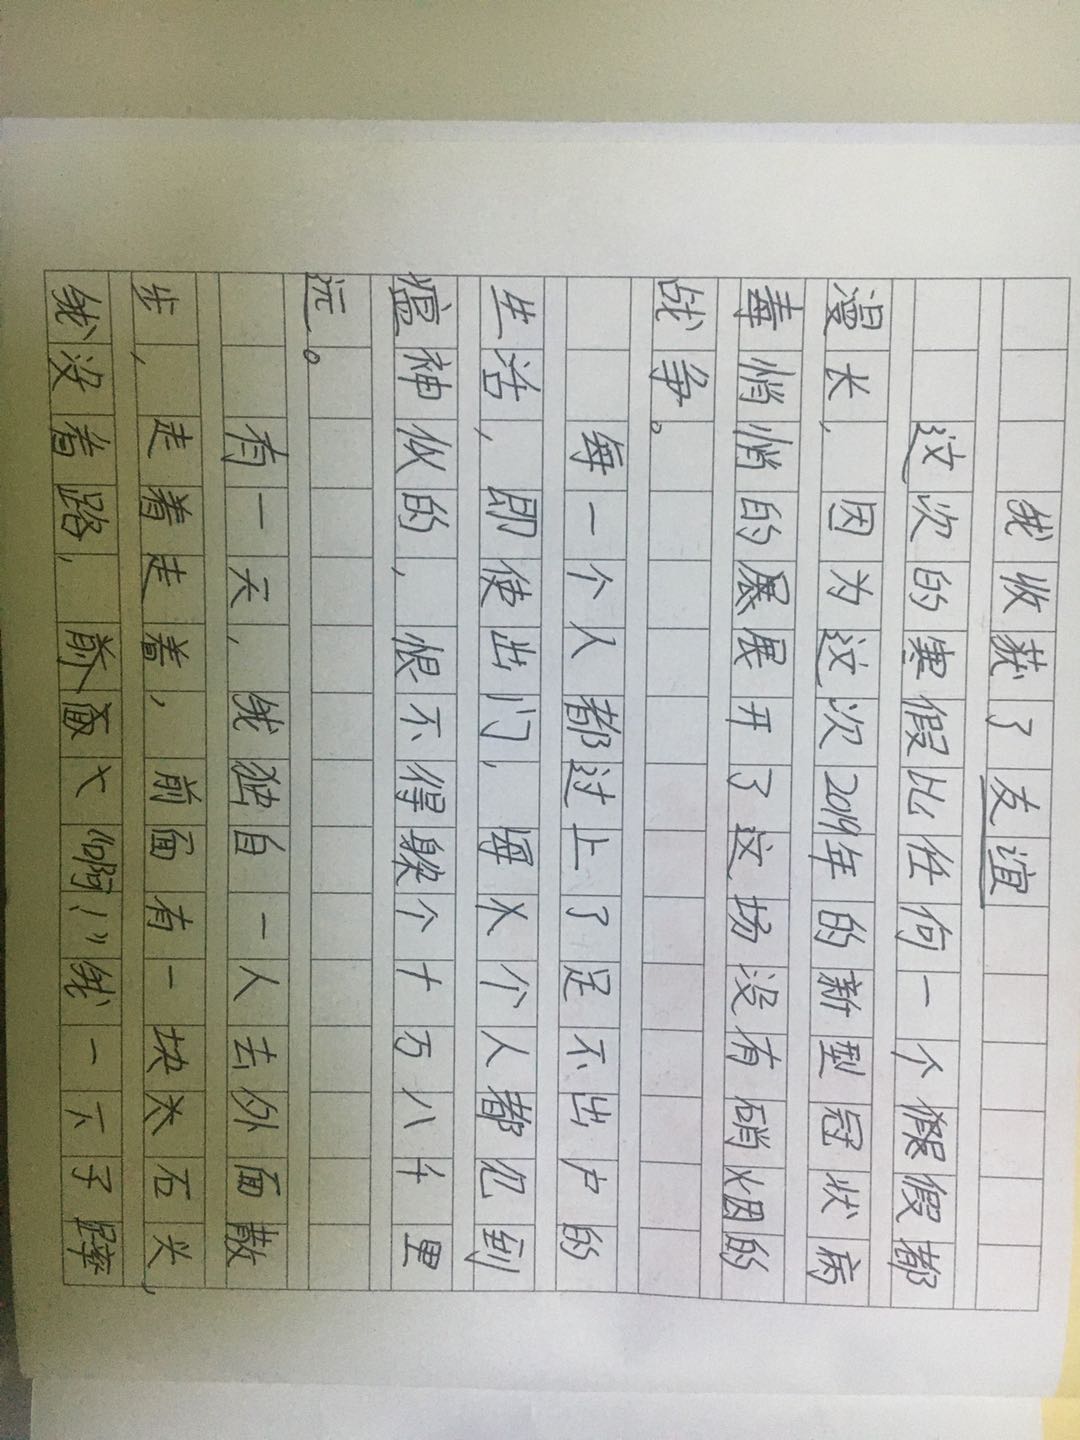 我收获了友谊
这次的寒假比任何一个假假都
漫长，因为这次2019年的新型冠状病
毒悄悄的展展开了这场没有硝烟的
战争。
每一个人都过上了足不出户的
生活，即使出门，每人个人都见到
瘟神似的，恨不得躲个十万八千里
远。
有一天，我独自一人去外面散
步，走着走着，前面有一块大石头，
我没看路，前面大"啊！"我一下子摔